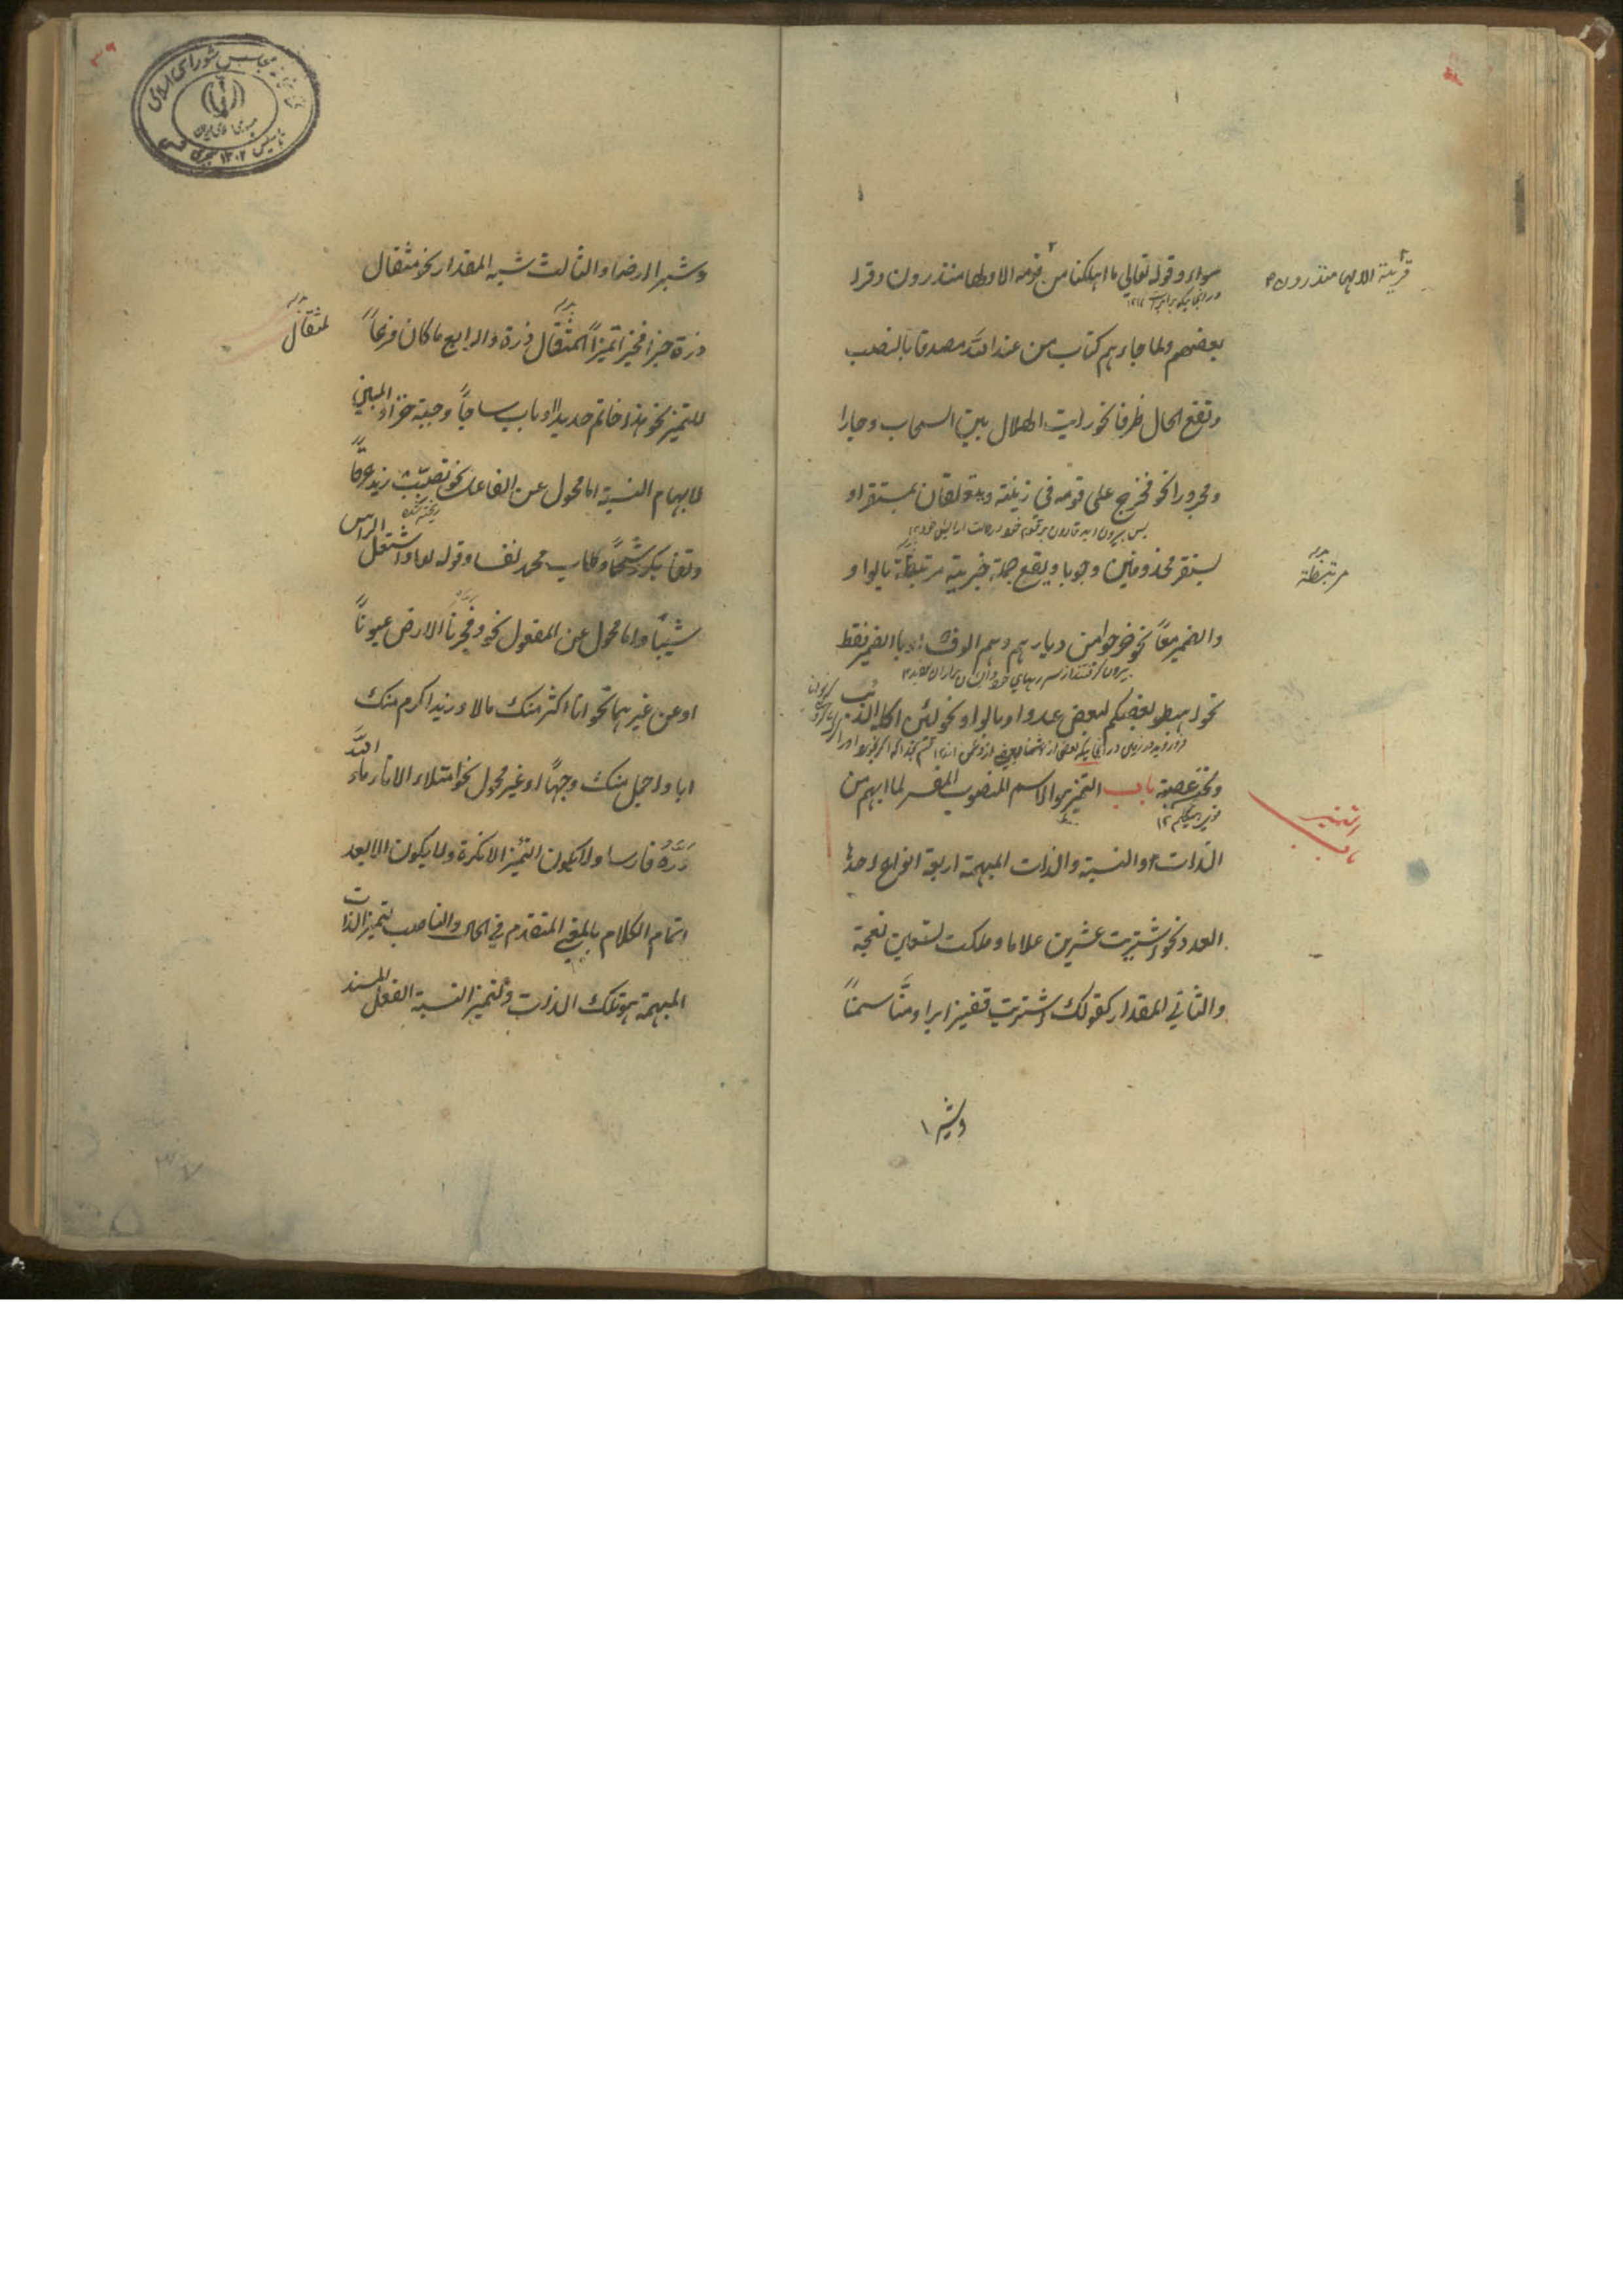 سواء وقوله تعالى ما اهلكنا من قرية الا ولها منذرون وقرا
قرية الا لها منذرون
بعضهم ولما جاءهم كتاب من عند الله مصدقا بالنصب
وتقع الحال ظرفا نحو رايت الهلال بين السحاب وجارا
ومجرورا نحو فخرج على قومه فى زينته ويتعلقان بمستقر او
استقر محذوفين وجوبا ويقع جملة خبرية مرتبطة بالواو
مرتبطة
والضمير معاً نحو خرجوا من ديارهم وهم الوف او بالضمير فقط
نحو اهبطو بعضكم لبعض عدو او بالواو نحو لئن اكله الذئب
ونحن عصبة باب التميز هو الاسم المنصوب المفسر لما ابهم من
باب التميز
الذات او النسبة والذات المبهمة اربعة انواع احدها
العدد نحو اشتريت عشرين غلاما وملكت تسعين نعجة
والثاني المقدار كقولك اشتريت قفيزا برا ومنّا سمناً
وشبرا
وشبرا ارضا والثالث شبه المقدار نحو مثقال
ذرة خيرا فخيرا تميزاً لمثقال ذرة والرابع ما كان فرعاً
لمثقال
للتميز نحو هذا خاتم حديدا او باب ساجاً وجبة خزا والمبين
لابهام النسبة اما محول عن الفاعل نحو تصبّب زيد عرقاً
وتفأ بكر شحماً وطاب محمد نفسا وقوله تعا واشتعل الراس
شيباً واما محول عن المفعول نحو وفجرنا الارض عيوناً
او عن غيرهما نحو انا اكثر منك مالا وزيد اكرم منك
ابا واجمل منك وجهاً او غير محول نحو امتلاء الاناء ماء الله
درّه فارسا ولا يكون التميز الا نكرة ولا يكون الا بعد
اتمام الكلام بالمعنى المتقدم في الحال والناصب لتميز الذات
المبهمة هو تلك الذات ولتميز النسبة الفعل المسند